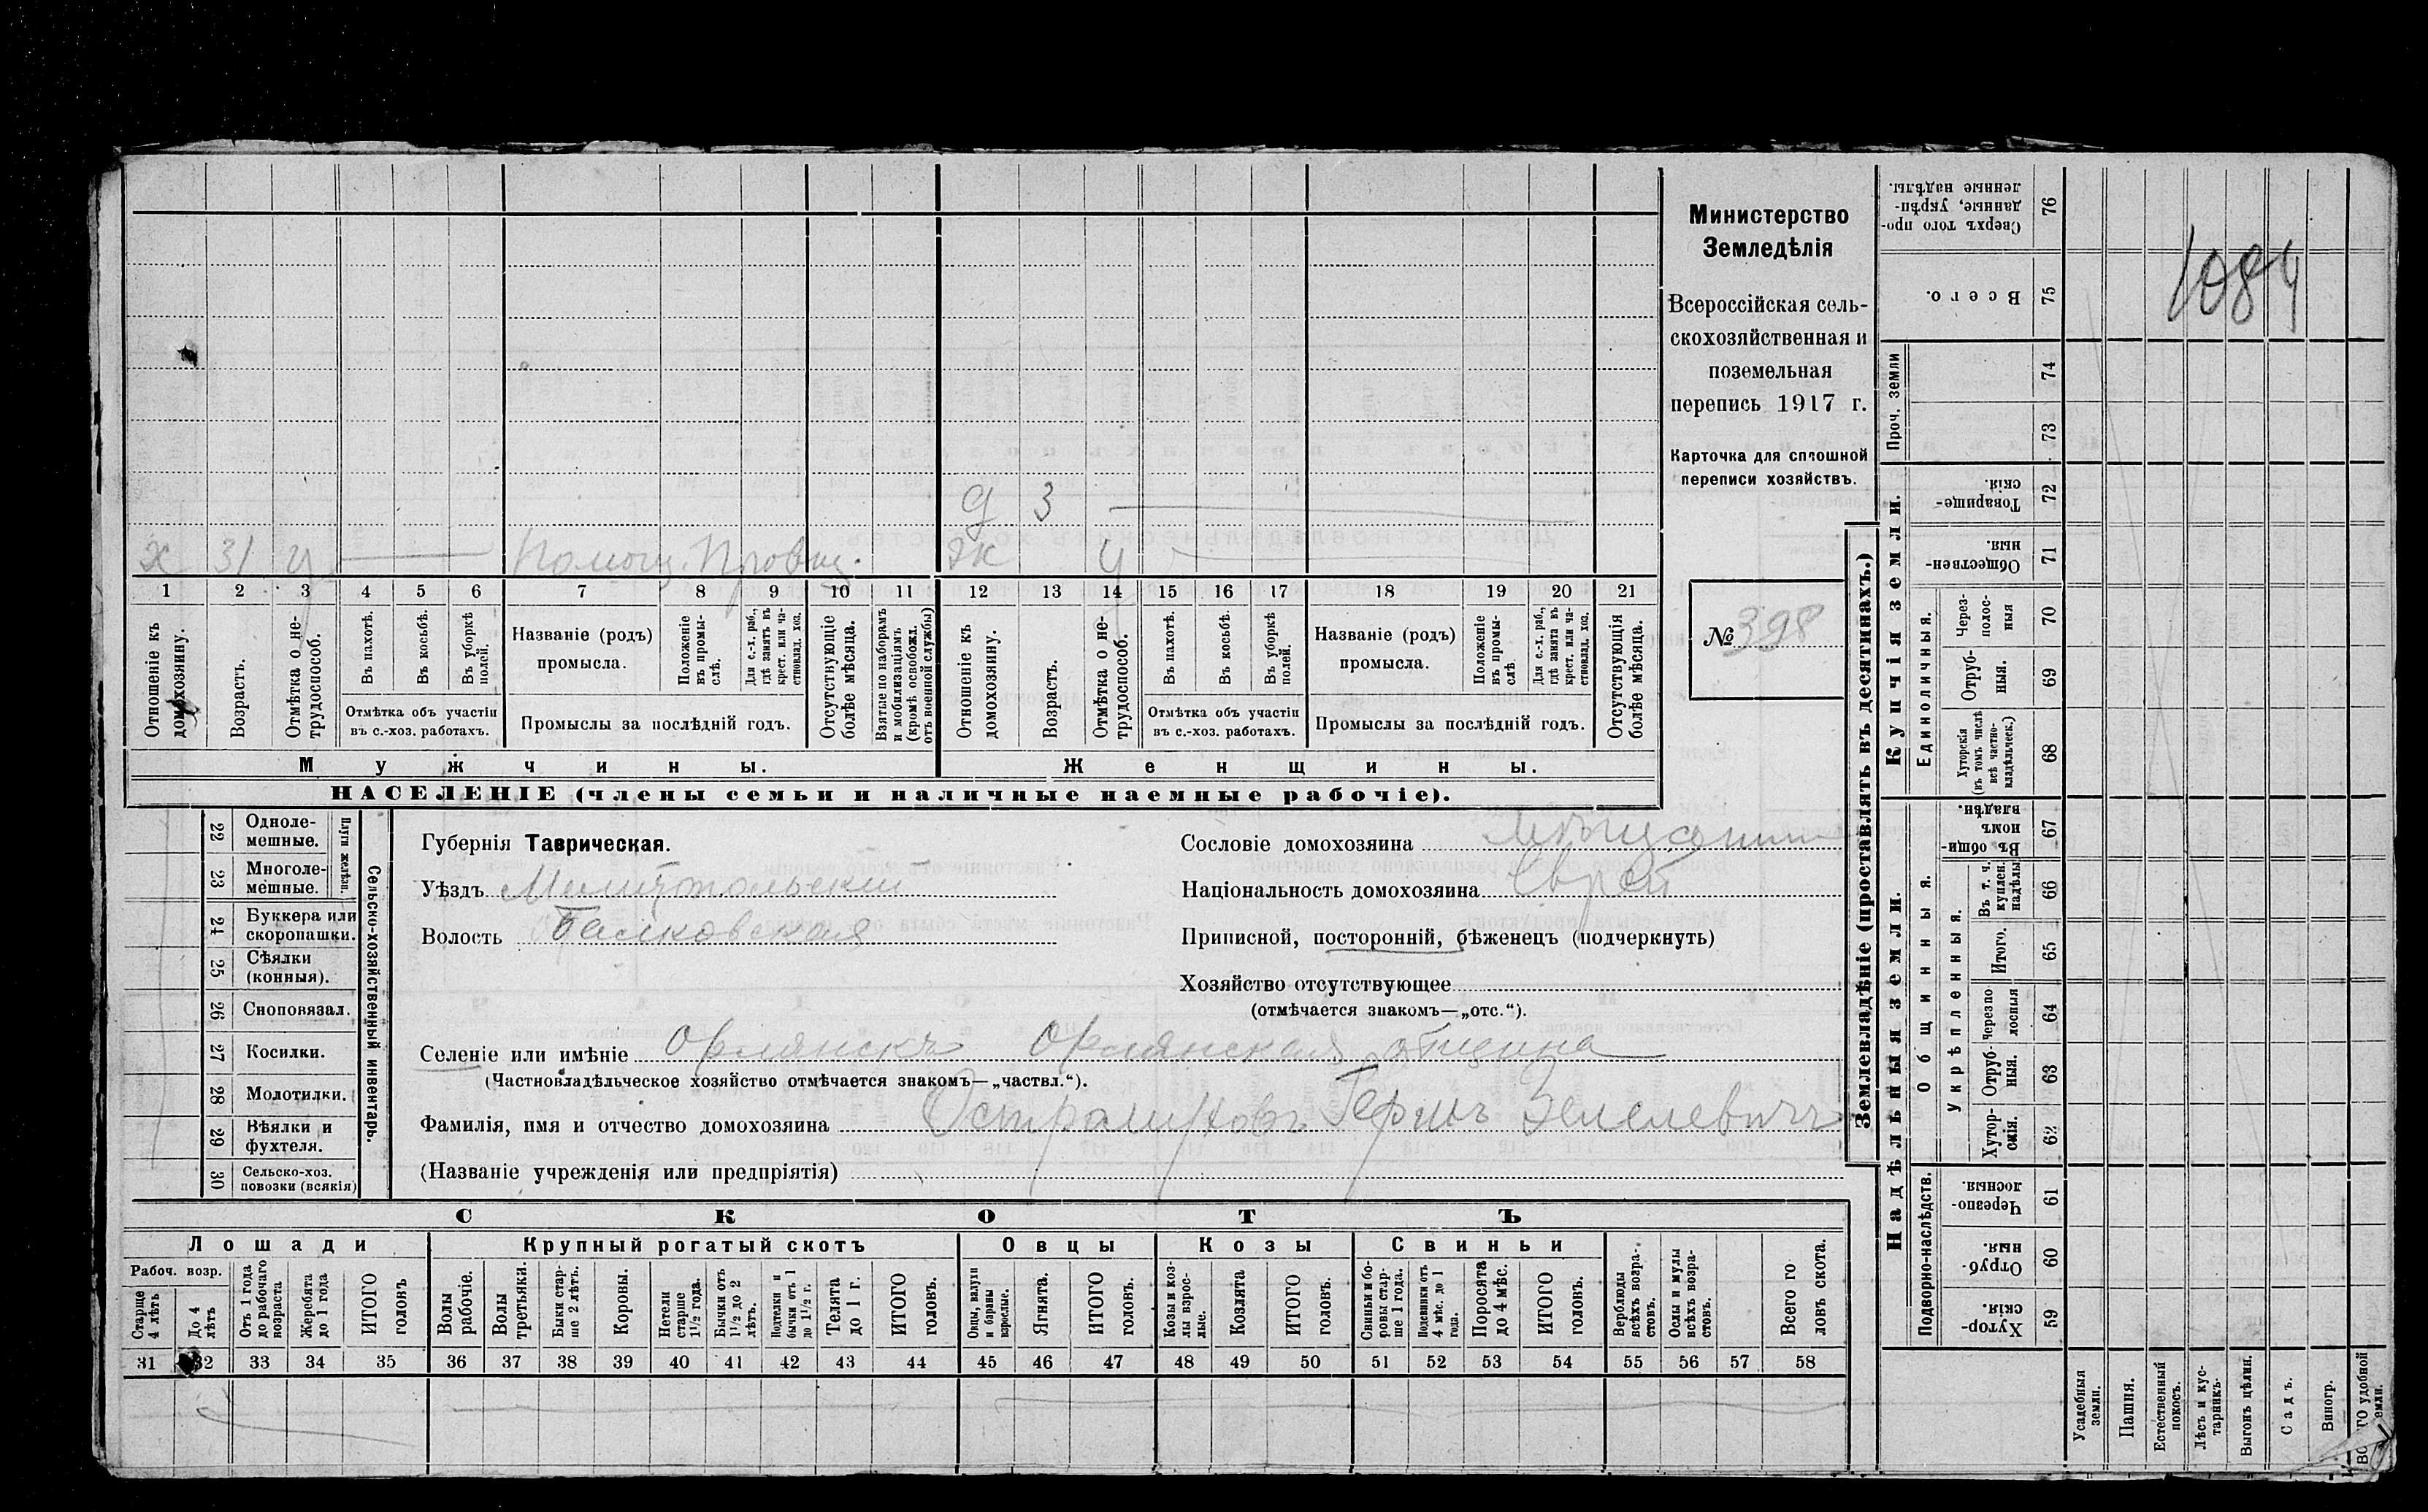 Министерство
Земледѣлія
Всероссійская сель-
скохозяйственная и
поземельная
перепись 1917 г.
Карточка для сплошной
переписи хозяйствъ.
№ 398
1084
д 3
х 31 у Помощ. Провиз. жк у
1 2 3 4 5 6 7 8 9 10 11 12 13 14 15 16 17 18 19 20 21
Отношеніе къ домохозяину.
Возрастъ.
Отмѣтка о не-трудоспособ.
Въ пахотѣ.
Въ косьбѣ.
Въ уборкѣ полей.
Отмѣтка объ участіи
въ с.-хоз. работахъ.
Названіе (родъ)
промысла.
Положеніе въ промы-слѣ.
Для с.-х. раб., гдѣ занятъ въ крест. или ча-стновлад. хоз.
Промыслы за послѣдній годъ.
Отсутствующіе болѣе мѣсяца.
Взятые по наборамъ и мобилизаціямъ (кромѣ освобожд. отъ военной службы)
Отношеніе къ домохозяину.
Возрастъ.
Отмѣтка о не-трудоспособ.
Въ пахотѣ.
Въ косьбѣ.
Въ уборкѣ полей.
Отмѣтка объ участіи
въ с.-хоз. работахъ.
Названіе (родъ)
промысла.
Положеніе въ промы-слѣ.
Для с.-х. раб., гдѣ занята въ крест. или ча-стновлад. хоз.
Промыслы за послѣдній годъ.
Отсутствующія болѣе мѣсяца.
Мужчины.
Женщины.
НАСЕЛЕНІЕ (члены семьи и наличные наемные рабочіе).
Сельско-хозяйственный инвентарь.
Плуги желѣзн.
22 Одноле-мешные.
23 Многоле-мешные.
24 Буккера или скоропашки.
25 Сѣялки (конныя).
26 Сноповязал.
27 Косилки.
28 Молотилки.
29 Вѣялки и фухтеля.
30 Сельско-хоз. повозки (всякія)
Губернія Таврическая.
Уѣздъ Мелитопольскій
Волость Балковская
Сословіе домохозяина Мѣщанинъ
Національность домохозяина Еврей
Приписной, посторонній, бѣженецъ (подчеркнуть)
Хозяйство отсутствующее
(отмѣчается знакомъ—„отс.“).
Селеніе или имѣніе Орлянскъ Орлянская община
(Частновладѣльческое хозяйство отмѣчается знакомъ—„частвл.“).
Фамилія, имя и отчество домохозяина Гершъ Зеleлевичъ
(Названіе учрежденія или предпріятія)
СКОТЪ
Лошади
Крупный рогатый скотъ
Овцы
Козы
Свиньи
Рабоч. возр.
Старше 4 лѣтъ
До 4 лѣтъ
Отъ 1 года до рабочаго возраста
Жеребята до 1 года
ИТОГО головъ
Волы рабочіе.
Волы третьяки.
Быки стар-ше 2 лѣтъ.
Коровы.
Нетели старше 1½ года.
Бычки отъ 1½ до 2 лѣтъ.
Подтелки и бычки отъ 1 до 1½ г.
Телята до 1 г.
ИТОГО головъ.
Овцы, валухи и бараны взрослые.
Ягнята.
ИТОГО головъ.
Козы и коз-лы взрос-лые.
Козлята
ИТОГО головъ.
Свиньи и бо-ровы стар-ше 1 года.
Подсвинки отъ 4 мѣс. до 1 года.
Поросята до 4 мѣс.
ИТОГО головъ.
Верблюды всѣхъ возра-стовъ.
Ослы и мулы всѣхъ возра-стовъ.
Всего го-ловъ скота.
31 32 33 34 35 36 37 38 39 40 41 42 43 44 45 46 47 48 49 50 51 52 53 54 55 56 57 58
Землевладѣніе (проставлять въ десятинахъ.)
Надѣльныя земли.
Купчія земли.
Проч. земли
Подворно-наслѣдств.
Общинныя.
Укрѣпленныя.
Единоличныя.
Сверхъ того про-данные, укрѣп-ленные надѣлы. 76
Всего. 75
74
73
Товарище-скій. 72
Обществен-ныя. 71
Через-полос-ныя 70
Отруб-ныя. 69
Хуторскія (въ томъ числѣ всѣ частно-владѣльческ.) 68
Въ общин-номъ владѣн. 67
Въ т. ч. куплен. надѣлы 66
Итого. 65
Черезпо-лосныя 64
Отруб-ныя. 63
Хутор-скія. 62
Черезпо-лосныя. 61
Отруб-ныя. 60
Хутор-скія 59
Усадебныя земли.
Пашня.
Естественный покосъ.
Лѣсъ и кус-тарникъ.
Выгонъ цѣлин.
Садъ.
Виногр.